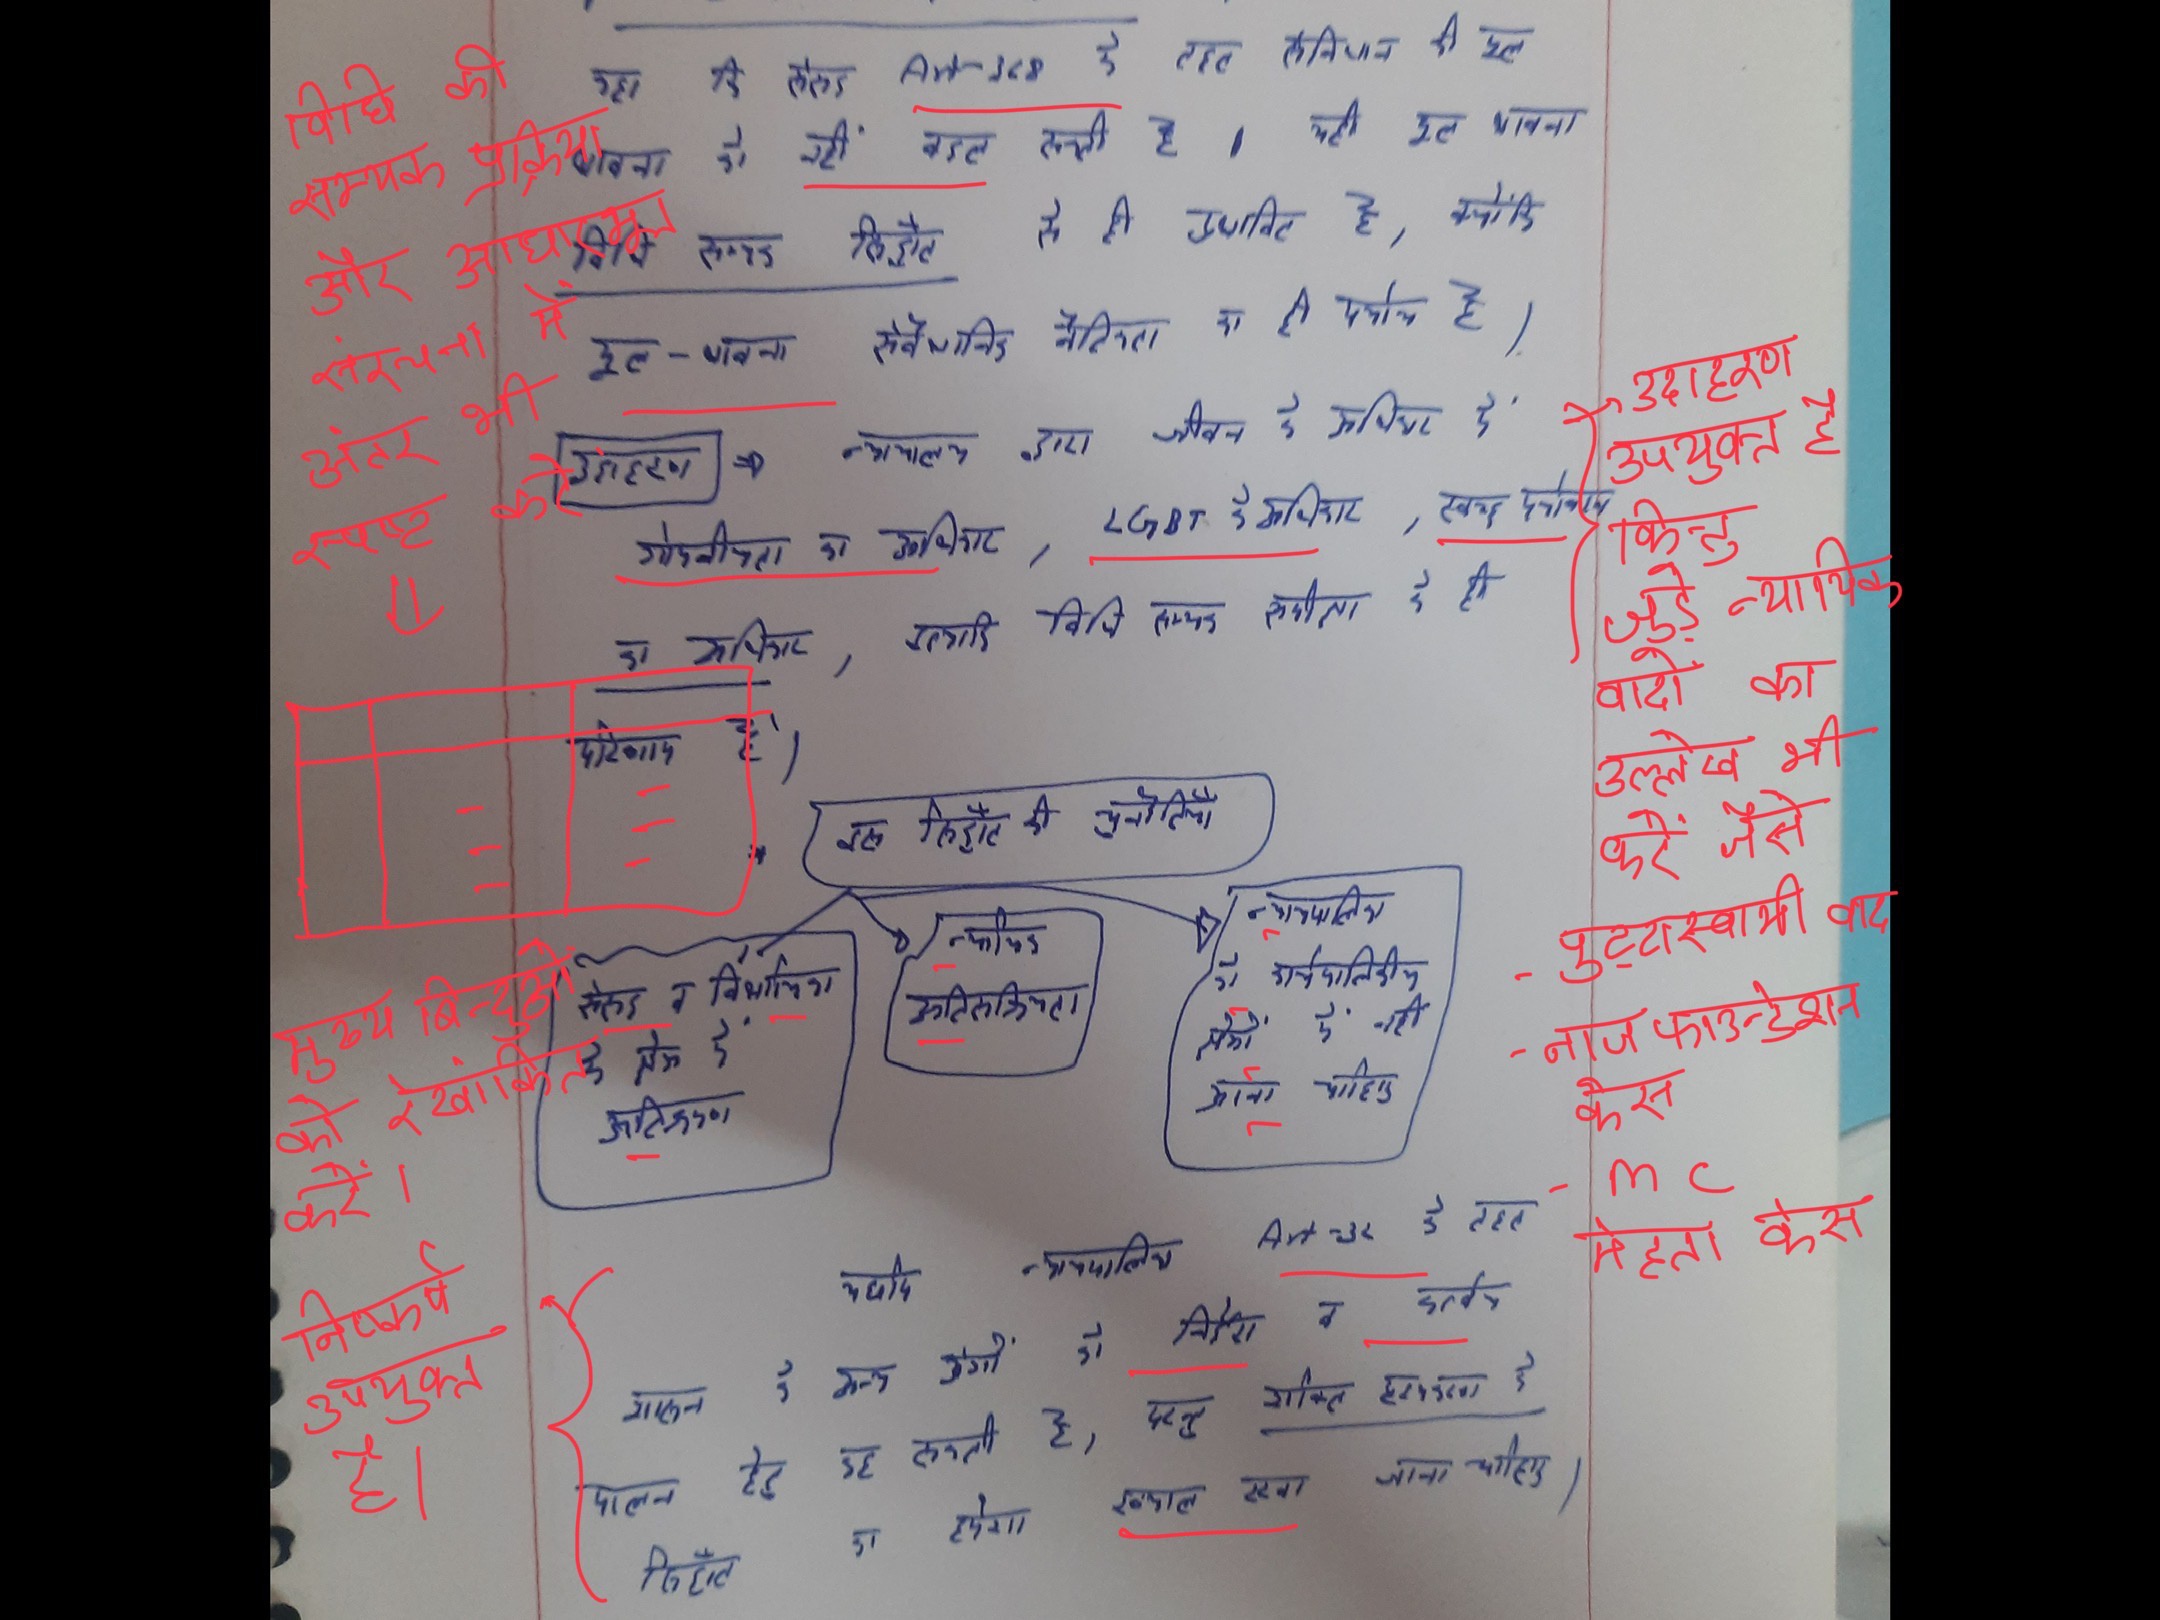 विधि की
सम्यक प्रक्रिया
और आधारभूत
संरचना में
अंतर भी
स्पष्ट करें
कहा कि संसद Art-368 के तहत संविधान की मूल
भावना को नहीं बदल सकती है । यही मूल भावना
विधि सम्यक सिद्धांत से ही प्रभावित है, क्योंकि
मूल-भावना संवैधानिक नैतिकता का ही पर्याय है।
उदाहरण ⇒ न्यायालय द्वारा जीवन के अधिकार में
गोपनीयता का अधिकार, LGBT के अधिकार, स्वच्छ पर्यावरण
का अधिकार, इत्यादि विधि सम्यक समीक्षा के ही
परिणाम हैं।
उदाहरण
उपयुक्त है
किन्तु
जुड़े न्यायिक
वादों का
उल्लेख भी
करें जैसे
- पुट्टास्वामी वाद
- नाज फाउन्डेशन
केस
- MC
मेहता केस
इस सिद्धांत की चुनौतियाँ
संसद व विधायिका
के क्षेत्र में
अतिक्रमण
न्यायिक
अतिसक्रियता
न्यायपालिका
को कार्यपालिकीय
क्षेत्रों में नहीं
आना चाहिए
मुख्य बिन्दुओं
को रेखांकित
करें ।
यद्यपि न्यायपालिका Art-32 के तहत
शासन के अन्य अंगों को निर्देश व कर्तव्य
पालन हेतु कह सकती है, परन्तु शक्ति पृथक्करण के
सिद्धांत का हमेशा ख्याल रखा जाना चाहिए।
निष्कर्ष
उपयुक्त
है।